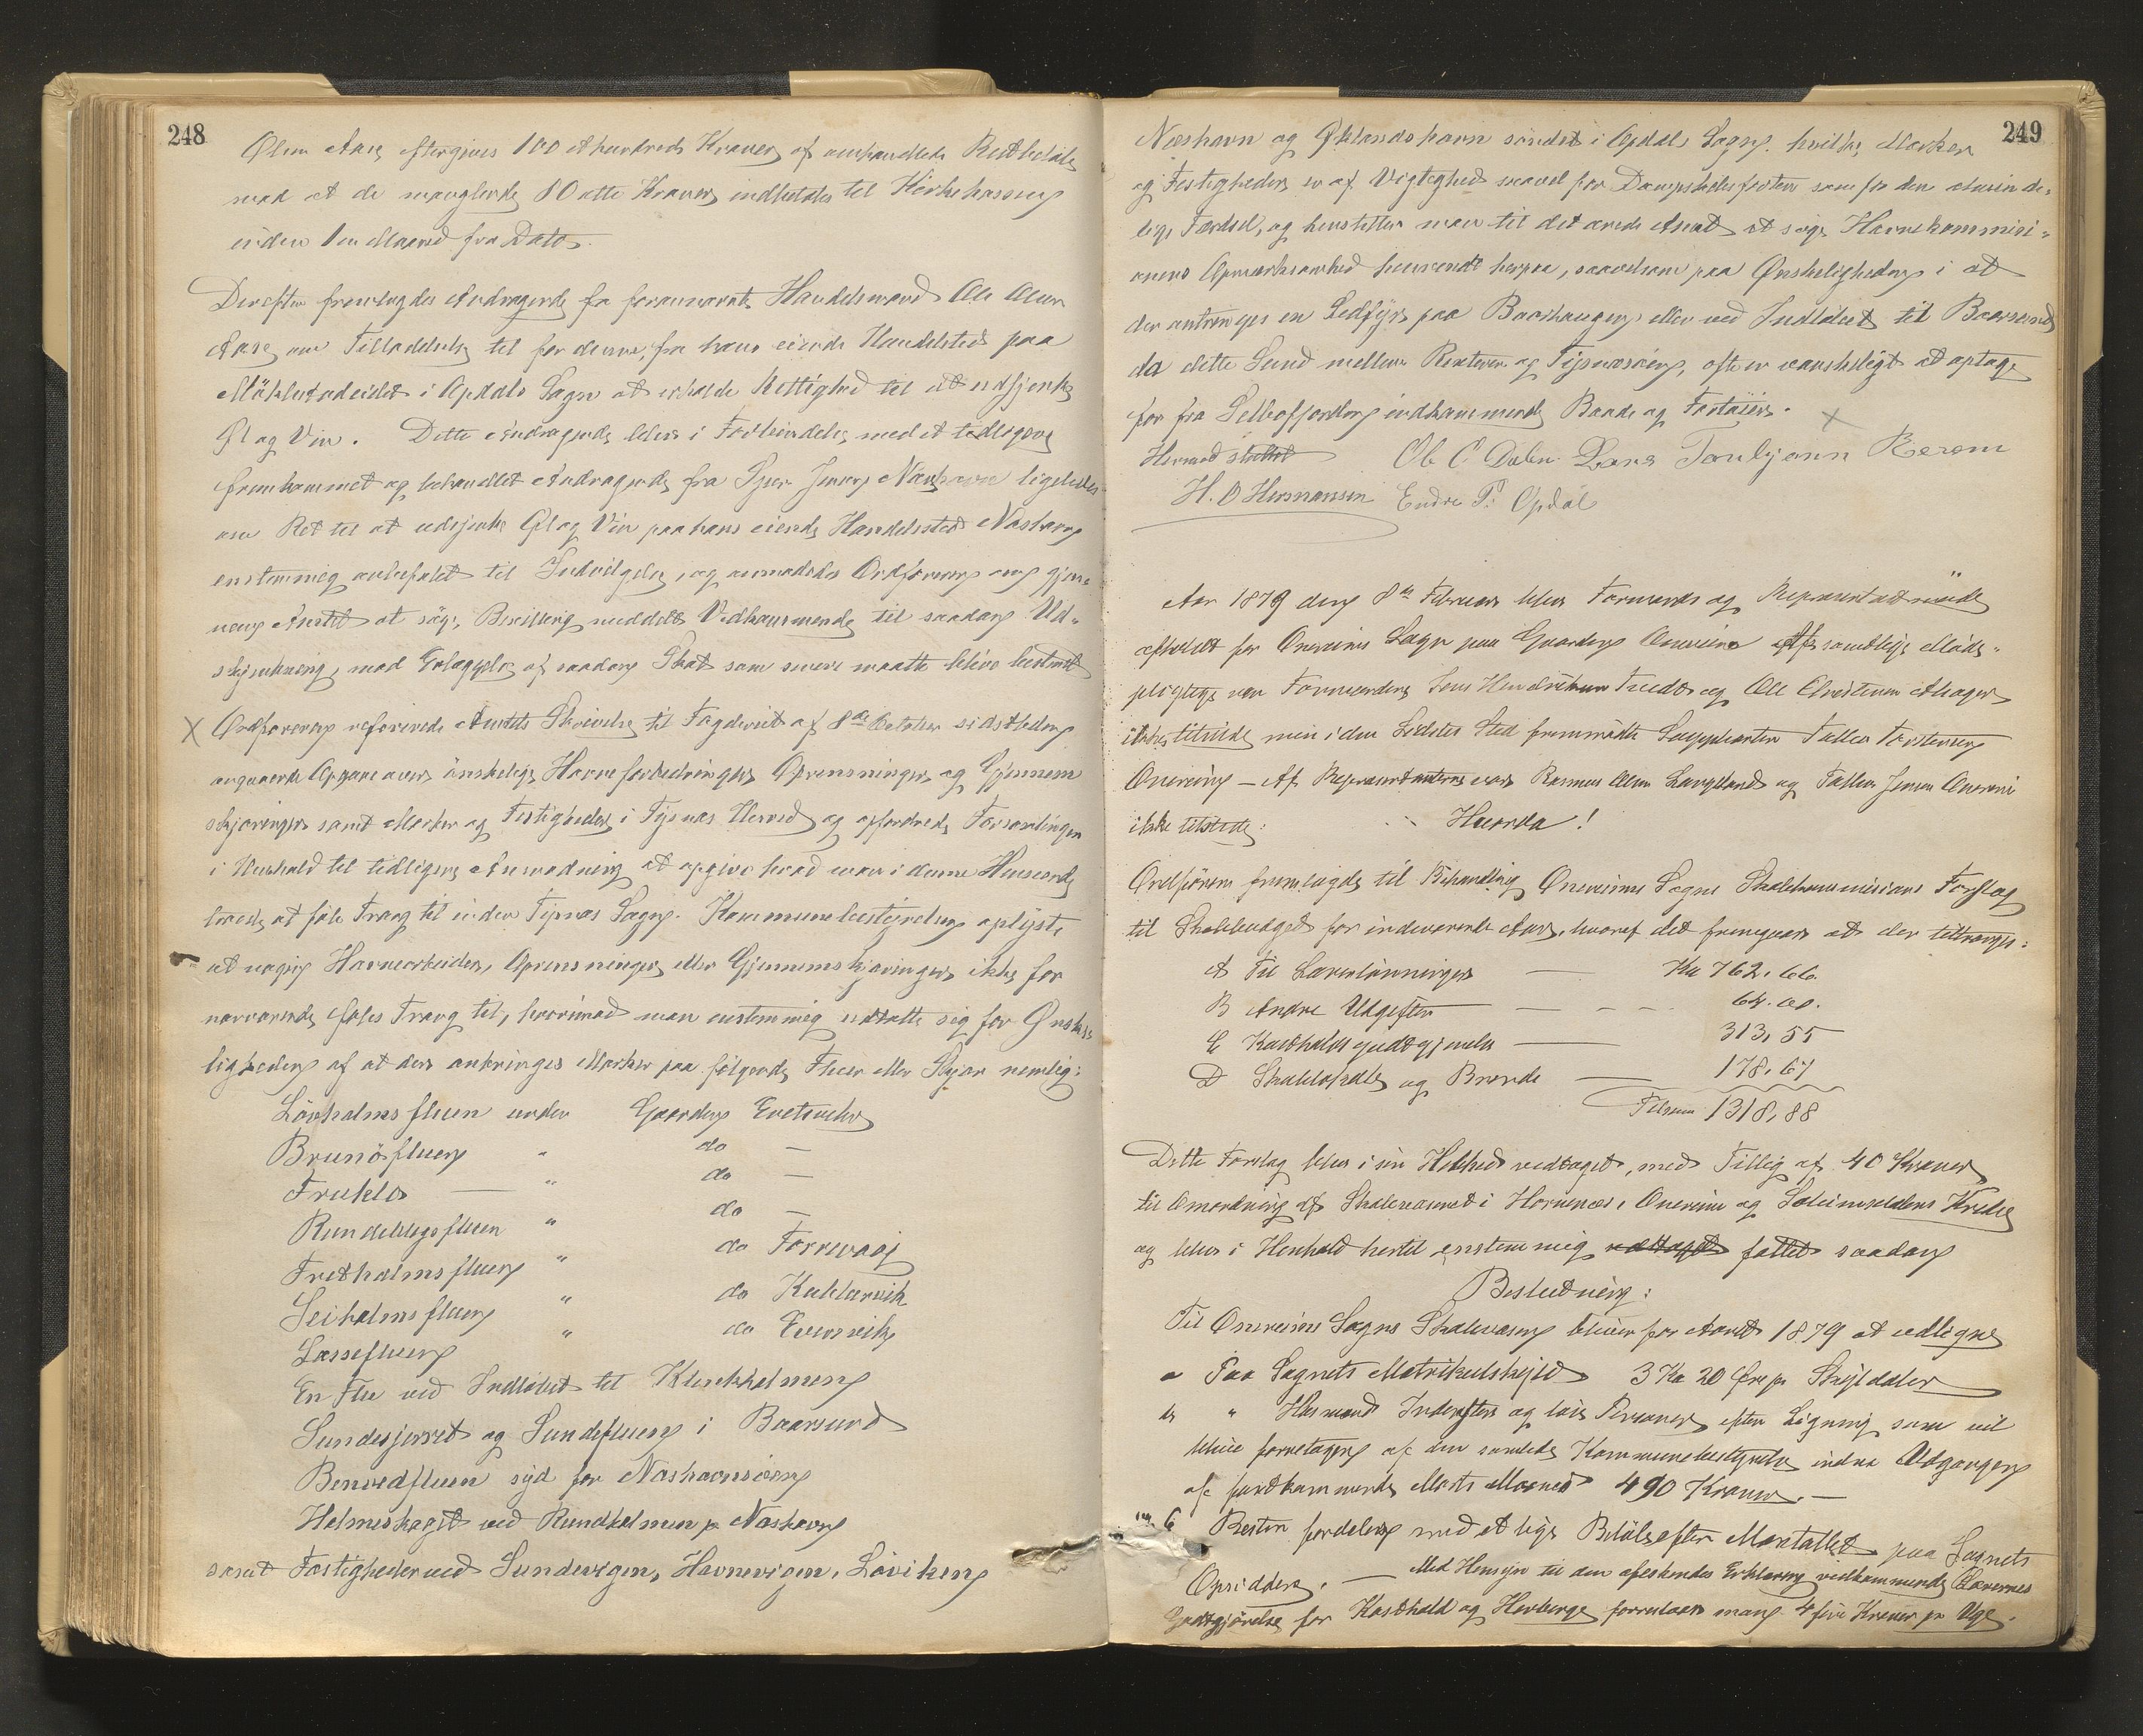 248
Olsen Aase eftergives 100 et hundrede Kroner af omhandlede Restbeløb
mod at de manglende 80 otte Kroner indbetales til Herredskassen
inden 1en Maaned fra Dato.
Derefter fremlagdes Andragende fra forannævnte Handelsmand Ole Olsen
Aase om Tilladelse til for denne, fra hans eiende Handelsted paa
i Opdals Sogn at erholde Rettighed til at udskjenke
Øl og Vin. Dette Andragende blev i Forbindelse med et tidligere
fremkommet og behandlet Andragende fra Peter Jensen Næshavn ligeledes
om Ret til at udskjenke Øl og Vin paa hans eiende Handelssted Næshavn
enstemmig anbefalet til Indvilgelse, og anmodedes Ordføreren om gjen-
nem Amtet at søge Bevilling meddelt Vedkommende til saadan Ud-
skjenkning, mod Erlæggelse af saadan Skat som senere maatte blive bestemt
X Ordføreren refererede Amtets Skrivelse til Fogderiet af 8de October sidstleden
angaaende Opgave over ønskelige Havneforbedringer Oprensninger og Gjennem
skjæringer samt Mærker og Festigheder i Tysnæs Herred og opfordrede Forsamlingen
i Henhold til tidligere Anmodning at opgive hvad man i denne Henseende
troede at føle Trang til inden Tysnæs Sogn. Kommunebestyrelsen oplyste
at nogen Havnearbeider, Oprensninger eller Gjennemskjæringer ikke for
nærværende føles Trang til, hvorimod man enstemmig udtalte sig for Ønske-
ligheden af at der anbringes Mærker paa følgende Fluer eller Skjær nemlig:
Løvholmsfluen under Gaarden
Brunøsfluen " do —
— " do —
fluen " do —
Fretholmsfluen " do
Seiholmsfluen " do
Lassefluen " do
En Flu ved Indløbet til Klenkholmen
Sundeskjæret og Sundefluen i Baarsund
Benvedfluen syd for Næshavnsøen
Holmeskaget ved Rundholmen p Næshavn
samt Festigheder ved Sundevigen, Havnevigen, Løviken
249
Næshavn og Øklandshavn søndst i Opdals Sogn, hvilke Mærker
og Festigheder er af Vigtighed saavel for Dampskibsfarten som for den almindelige
lige Færdsel, og henstiller man til det ærede Amt at søge Havnekommisi-
onens Opmærksomhed henvendt herpaa, saavelsom paa Ønskeligheden i at
der anbringes en Ledfyr paa Baarhaugen eller ved Indløbet til Baarsund
da dette Sund mellem Reksteren og Tysnæsøen, ofte er vanskeligt at optage
for fra Selbofjorden indkommende Baade og Fartøier. X
Hermed sluttet Ob O Dalen Lars Tonbjønn Reram
H. O Hermansen Endre P. Opdal
Aar 1879 den 8de Februar blev Formands og Repræsentantmøde
afholdt for Onereims Sogn paa Gaarden Onereim Af samtlige Møde-
pligtige var Formændene Jens Hendriksen Tveit og Ole Christensen
ikke tilstede men i den Sidstes Sted fremmødte Suppleanten Tollev Torstensen
Onereim — Af Repræsentanterne vare Rasmus Olsen Langeland og Tollev Jensen Onereim
ikke tilstede: Hvorda!
Ordføreren fremlagde til Behandling Onereims Sogns Skolekommisions Forslag
til Skolebudget for indeværende Aar, hvoraf det fremgaar at der tiltrænges:
A Til Lærerlønninger — Kr 762,66
B Andre Udgifter — — — 64.00.
C Kostholdsgodtgjørelse — 313,55
D Skolelokale og Brænde — 178,67
Tilsam 1318,88
Dette Forslag blev i sin Helhed vedtaget, med Tillæg af 40 Kroner
til Omordning af Skolevæsenet i Hornenes, Onereim og Kredse
og blev i Henhold hertil enstemmig vedtaget fattet saadan
Beslutning:
Til Onereims Sogns Skolevæsen bliver for Aaret 1879 at udligne
a Paa Sognets Matrikulskyld 3 Kr 20 Øre pr Skylddaler
b " Husmænd Inderster og løse Personer efter Ligning som vil
blive foretagen af den samlede Kommunebestyrelse inden Udgangen
af førstkommende Marts Maaned 490 Kroner. —
og C Resten fordeles med et lige Beløb efter Mantallet paa Sognets
Opsiddere. — Med Hensyn til den afæskede Erklæring vedkommende Lærernes
Godtgjørelse for Kosthold og Herberge foresloges man 4 fire Kroner pr Uge.